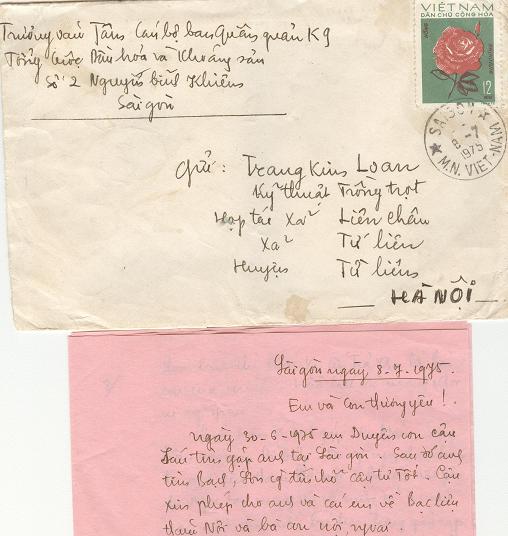 Trương văn Tân Cán bộ ban Quân quản K9
Tổng cục Dầu hóa và Khoáng sản
Số 2 Nguyễn bỉnh Khiêm
Sài gòn
VIỆT NAM
DÂN CHỦ CỘNG HÒA
12
SAIGON
8-7
1975
M.N. VIET-NAM
Gửi: Trang Kim Loan
Kỹ thuật Trồng trọt
Hợp tác Xã Liên châu
Xã Tứ liên
Huyện Từ liêm
HÀ NỘI
Sài gòn ngày 8.7.1975.
Em và Con thương yêu!
Ngày 30-6-1975 em Duyên con cậu
Sáu tìm gặp anh tại Sài gòn. Sau đó anh
tìm Bạch, cậu Tư Tốt. Cậu
xin phép cho anh và các em về Bạc liêu
thăm Nội và bà con nội, ngoại.